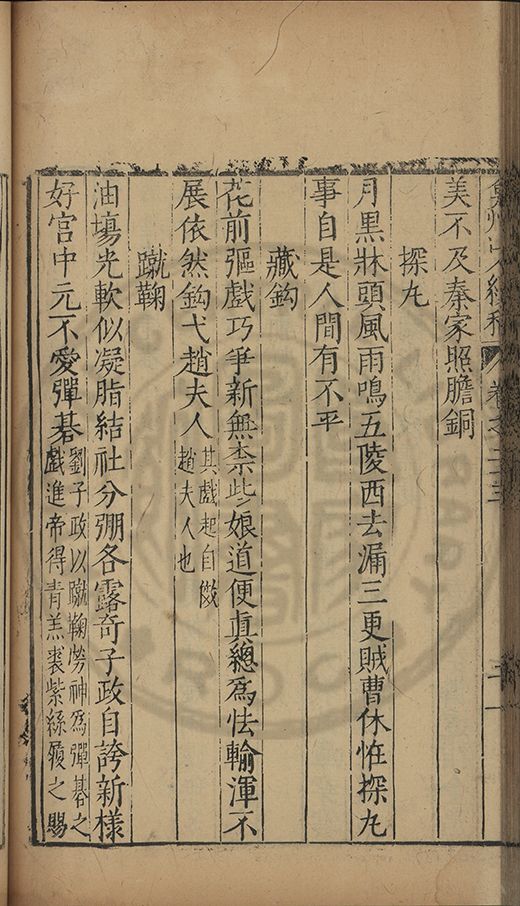 弇州山人續稿 卷之二十三
美不及秦家照膽銅
探丸
月黑牀頭風雨鳴五陵西去漏三更賊曹休恠探丸
事自是人間有不平
藏鈎
花前彄戲巧爭新無柰些娘道便真總爲怯輸渾不
展依然鈎弋趙夫人其戲起自
趙夫人也
蹴鞠
油塲光軟似凝脂結社分弸各露奇子政自誇新樣
好宮中元不愛彈碁劉子政以蹴鞠勞神爲彈碁之
戲進帝得青羔裘紫絲履之賜